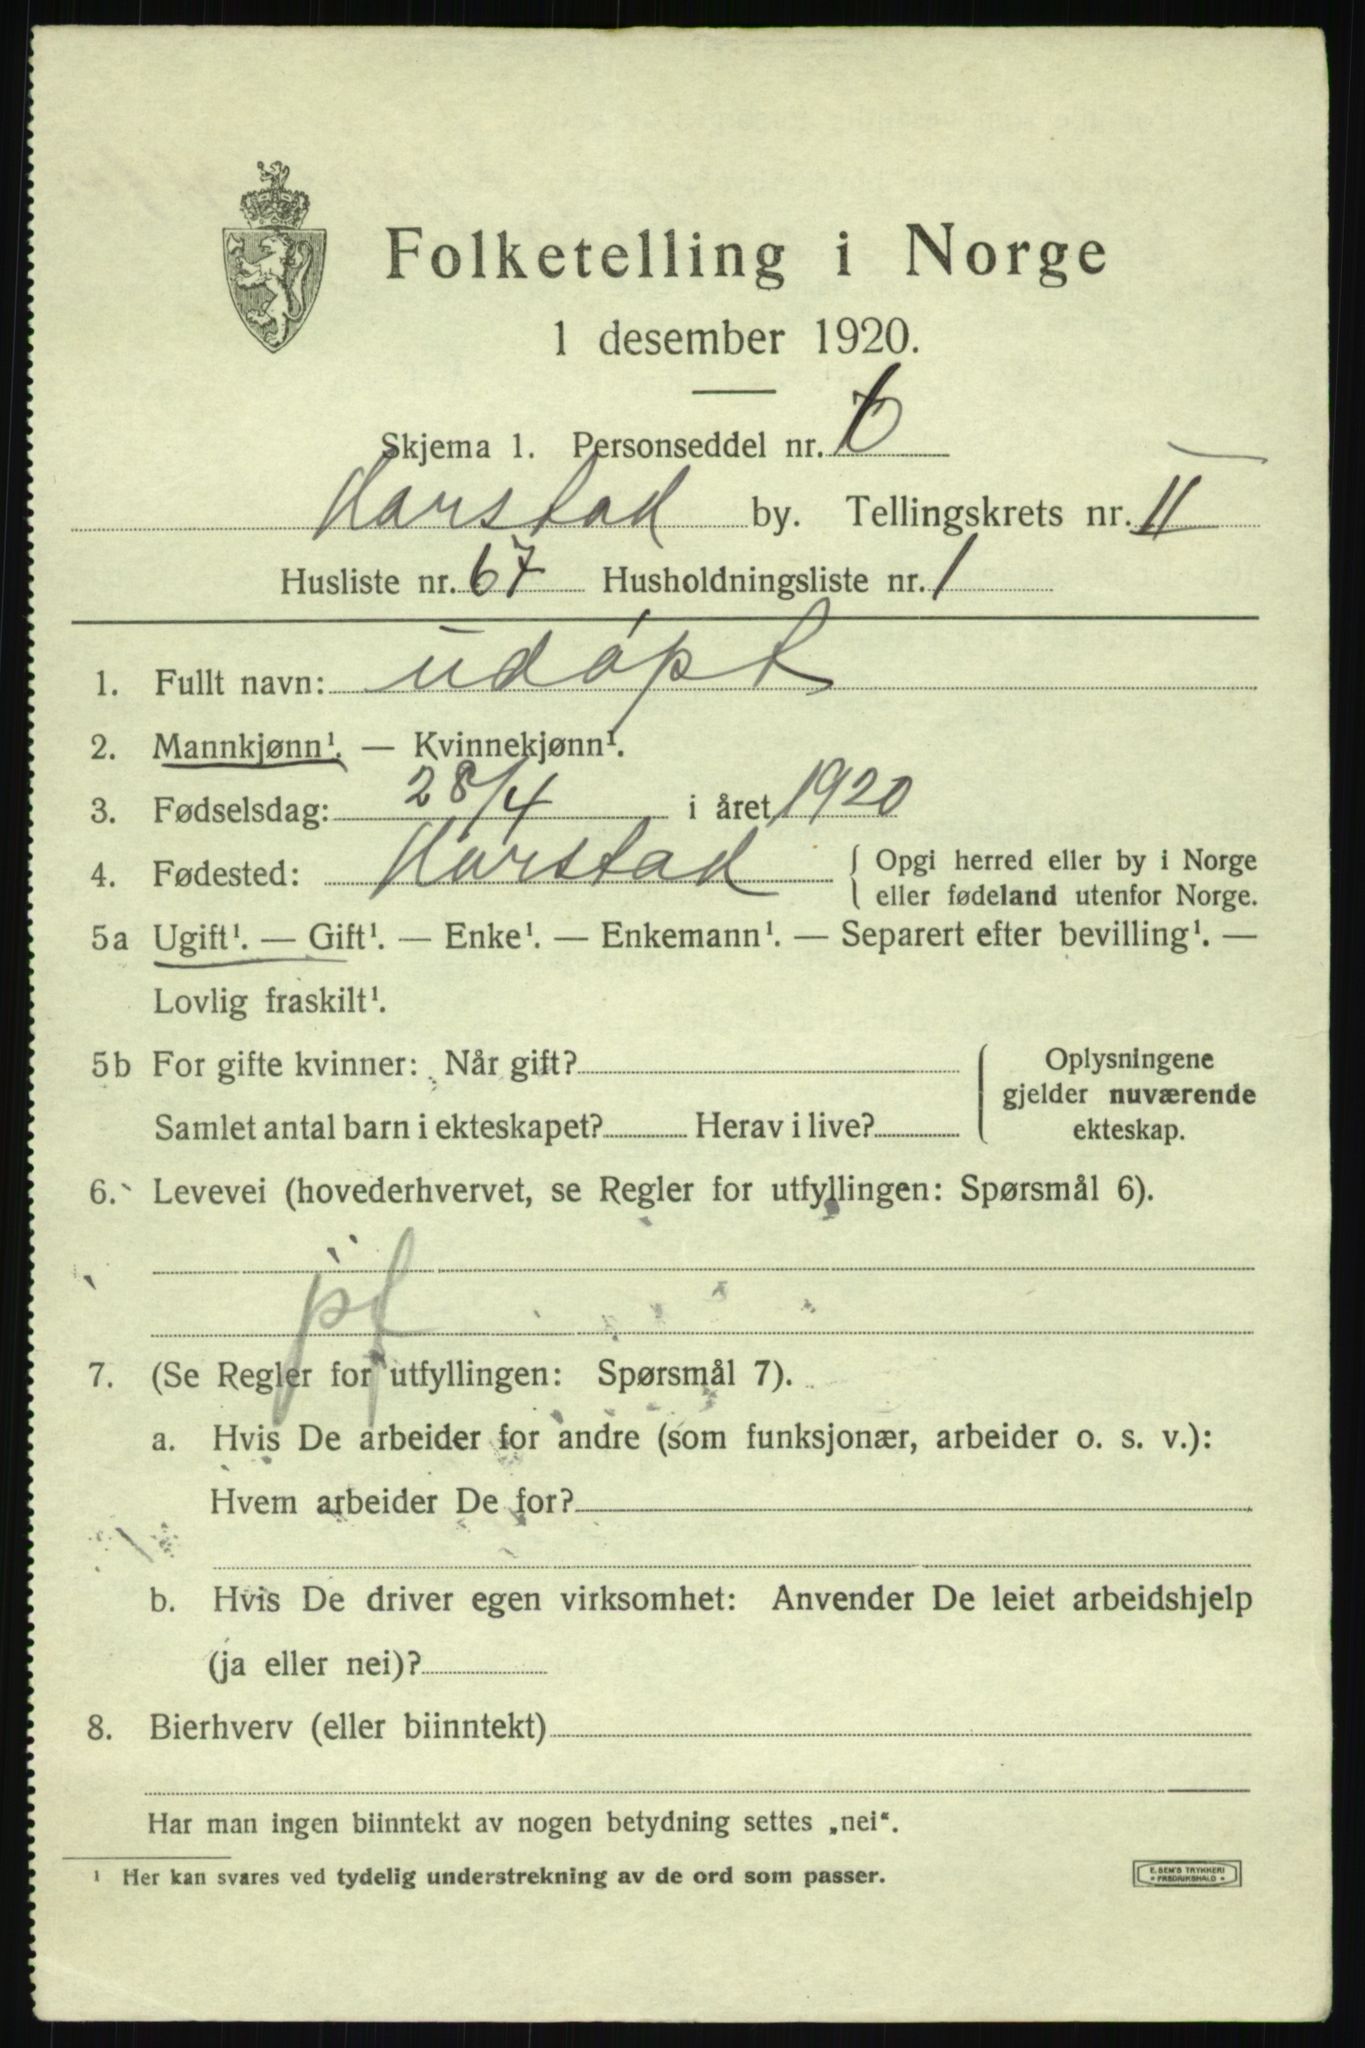 Folketelling i Norge
1 desember 1920.
Skjema 1. Personseddel nr.
Harstad by. Tellingskrets nr. II
Husliste nr. 67 Husholdningsliste nr. 1
1. Fullt navn: udøpt
2. Mannkjønn¹. — Kvinnekjønn¹.
3. Fødselsdag: 28/4 i året 1920
4. Fødested: Harstad { Opgi herred eller by i Norge
eller fødeland utenfor Norge.
5a Ugift¹. — Gift¹. — Enke¹. — Enkemann¹. — Separert efter bevilling¹. —
Lovlig fraskilt¹.
5b For gifte kvinner: Når gift? { Oplysningene
gjelder nuværende
Samlet antal barn i ekteskapet? Herav i live? ekteskap.
6. Levevei (hovederhvervet, se Regler for utfyllingen: Spørsmål 6).
7. (Se Regler for utfyllingen: Spørsmål 7).
a. Hvis De arbeider for andre (som funksjonær, arbeider o. s. v.):
Hvem arbeider De for?
b. Hvis De driver egen virksomhet: Anvender De leiet arbeidshjelp
(ja eller nei)?
8. Bierhverv (eller biinntekt)
Har man ingen biinntekt av nogen betydning settes „nei“.
¹ Her kan svares ved tydelig understrekning av de ord som passer.
E. SEM'S TRYKKERI
• FREDRIKSHALD •